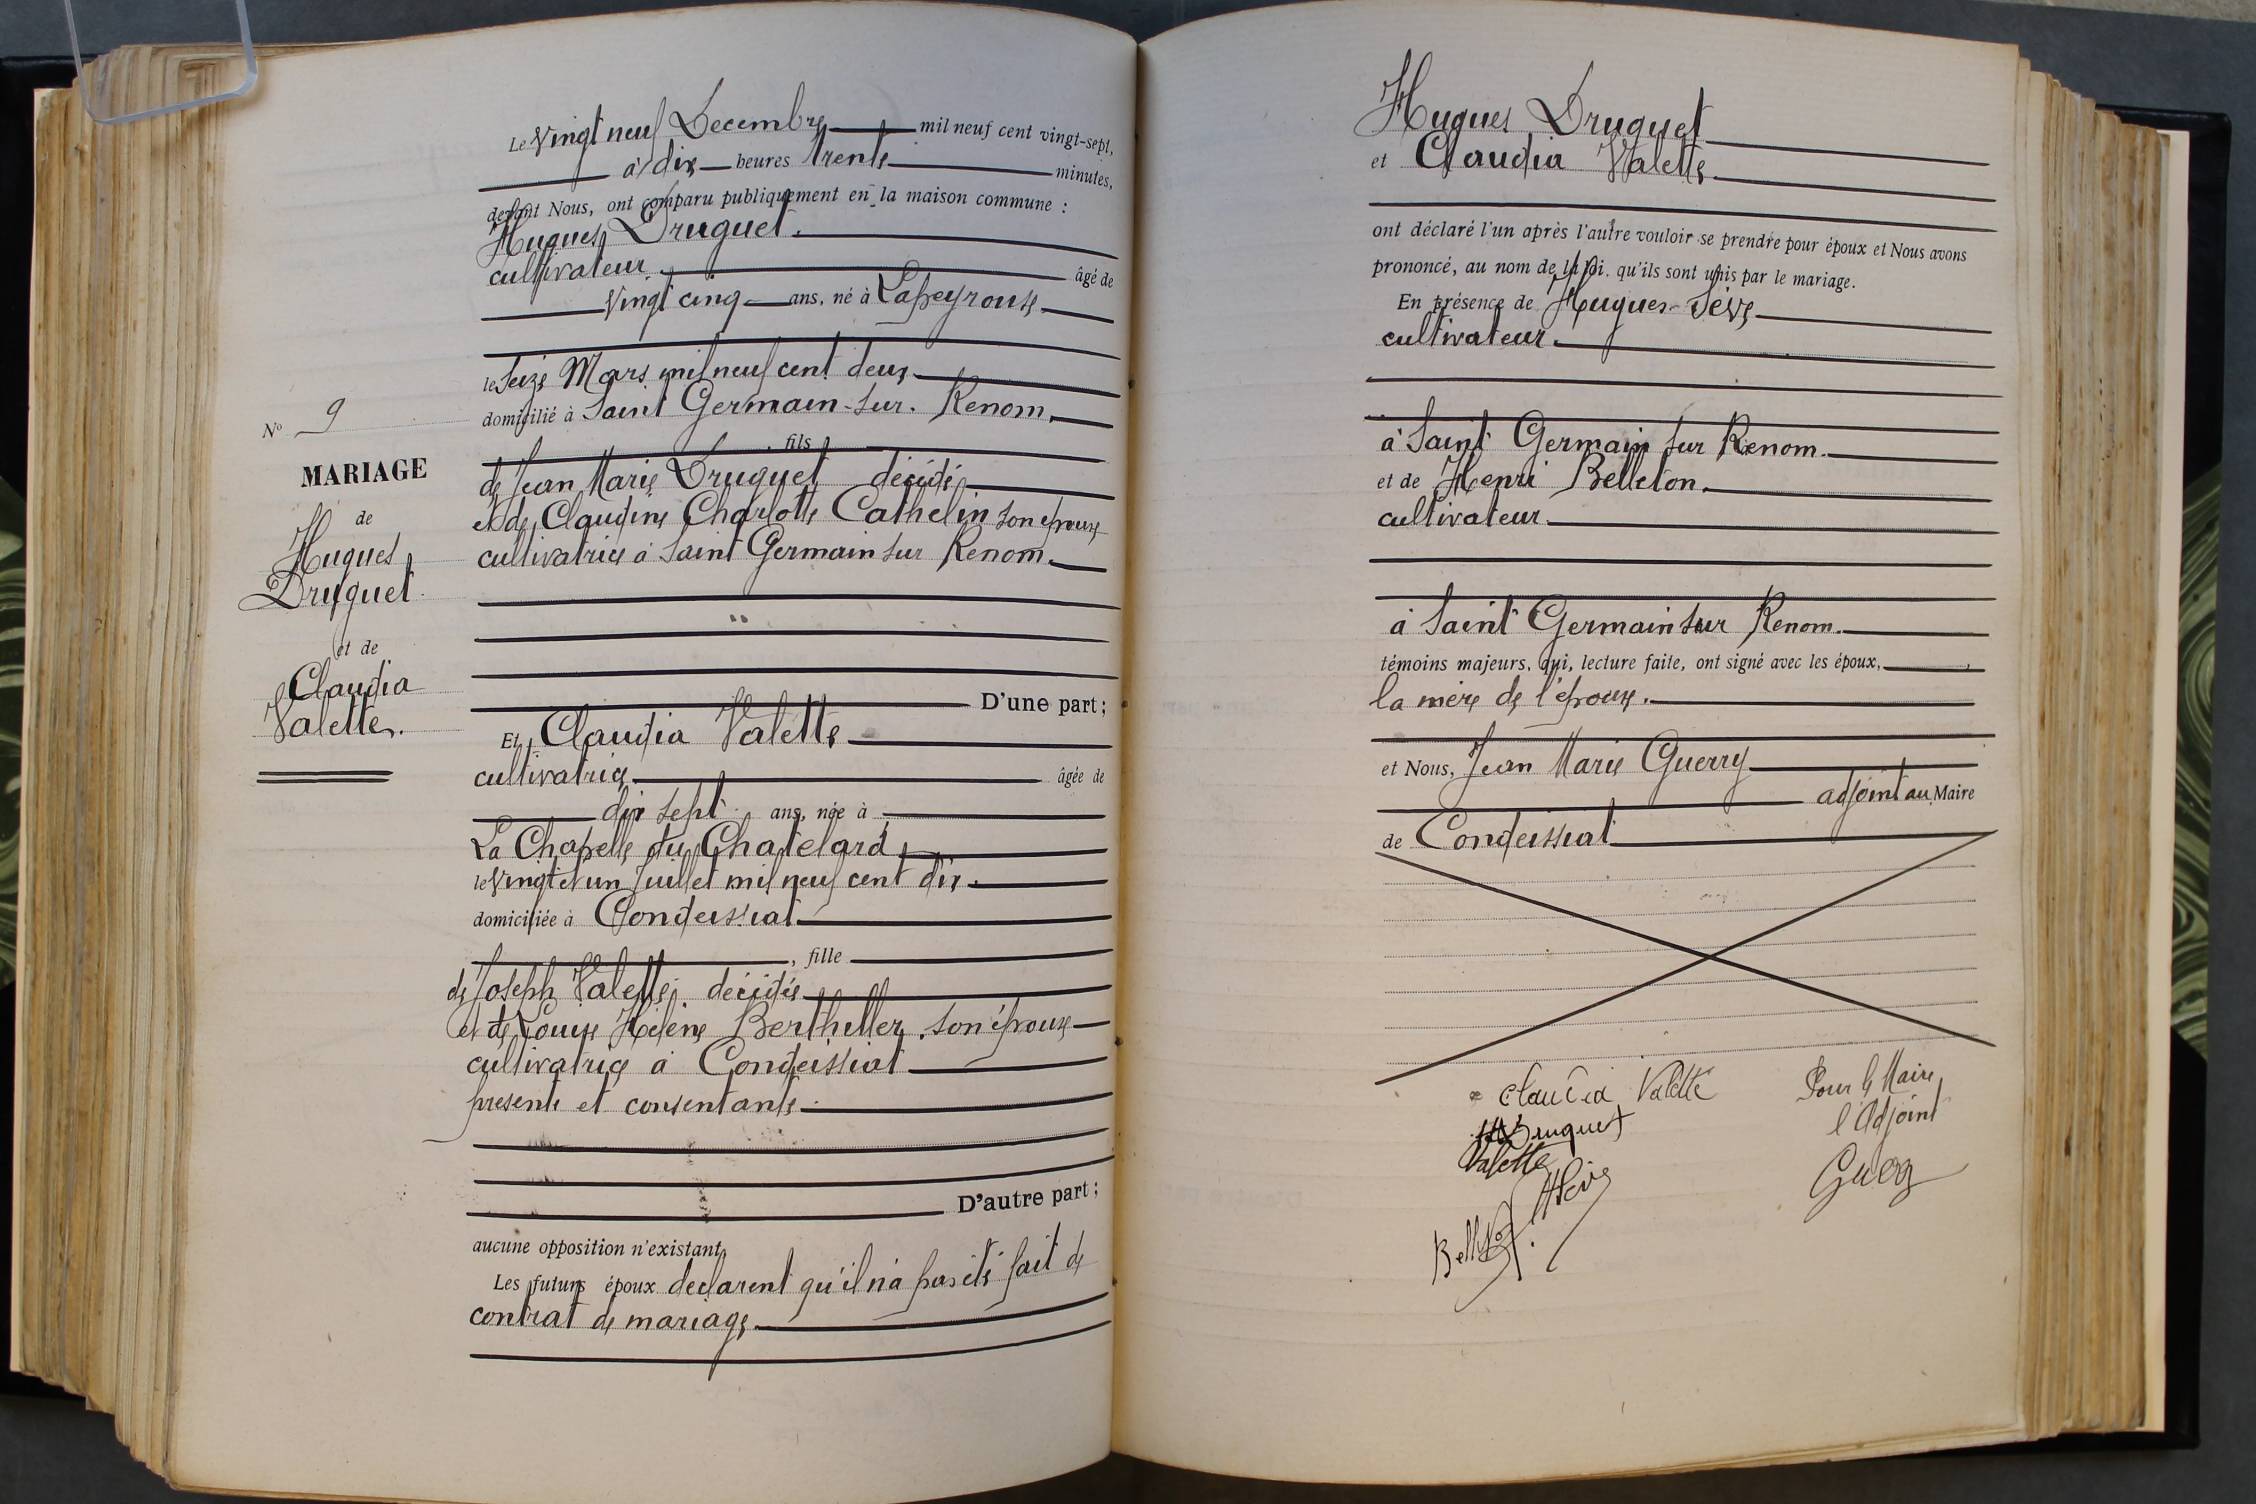 Le Vingt neuf Decembre mil neuf cent vingt-sept,
à dix heures trente minutes,
devant Nous, ont comparu publiquement en la maison commune :
Hugues Druguet.
cultivateur. âgé de
Vingt cinq ans, né à Lapeyrouse
le Seize Mars mil neuf cent deux
domicilié à Saint Germain-sur. Renom.
fils
de Jean Marie Druguet décédé
et de Claudine Charlotte Cathelin son épouse
cultivatrice à Saint Germain sur Renom.
D'une part ;
N° 9
MARIAGE
de
Hugues
Druguet.
et de
Claudia
Valette.
Et Claudia Valette
cultivatrice âgée de
dix sept ans, née à
La Chapelle du Chatelard
le Vingt et un Juillet mil neuf cent dix.
domiciliée à Condeissiat
, fille
de Joseph Valette. décédé
et de Louise Hélène Berthiller. son épouse
cultivatrice à Condeissiat
présente et consentante.
D'autre part ;
aucune opposition n'existant,
Les futurs époux declarent qu'il n'a pas été fait de
contrat de mariage
Hugues Druguet
et Claudia Valette
ont déclaré l'un après l'autre vouloir se prendre pour époux et Nous avons
prononcé, au nom de la loi. qu'ils sont unis par le mariage.
En présence de Hugues Sève
cultivateur.
à Saint Germain sur Renom.
et de Henri Belleton.
cultivateur.
à Saint Germain sur Renom.
témoins majeurs, qui, lecture faite, ont signé avec les époux,
la mère de l'épouse.
et Nous, Jean Marie Guerry
adjoint au Maire
de Condeissiat
Claudia Valette
Druguet
Valette
HSève
Pour le Maire
l'Adjoint